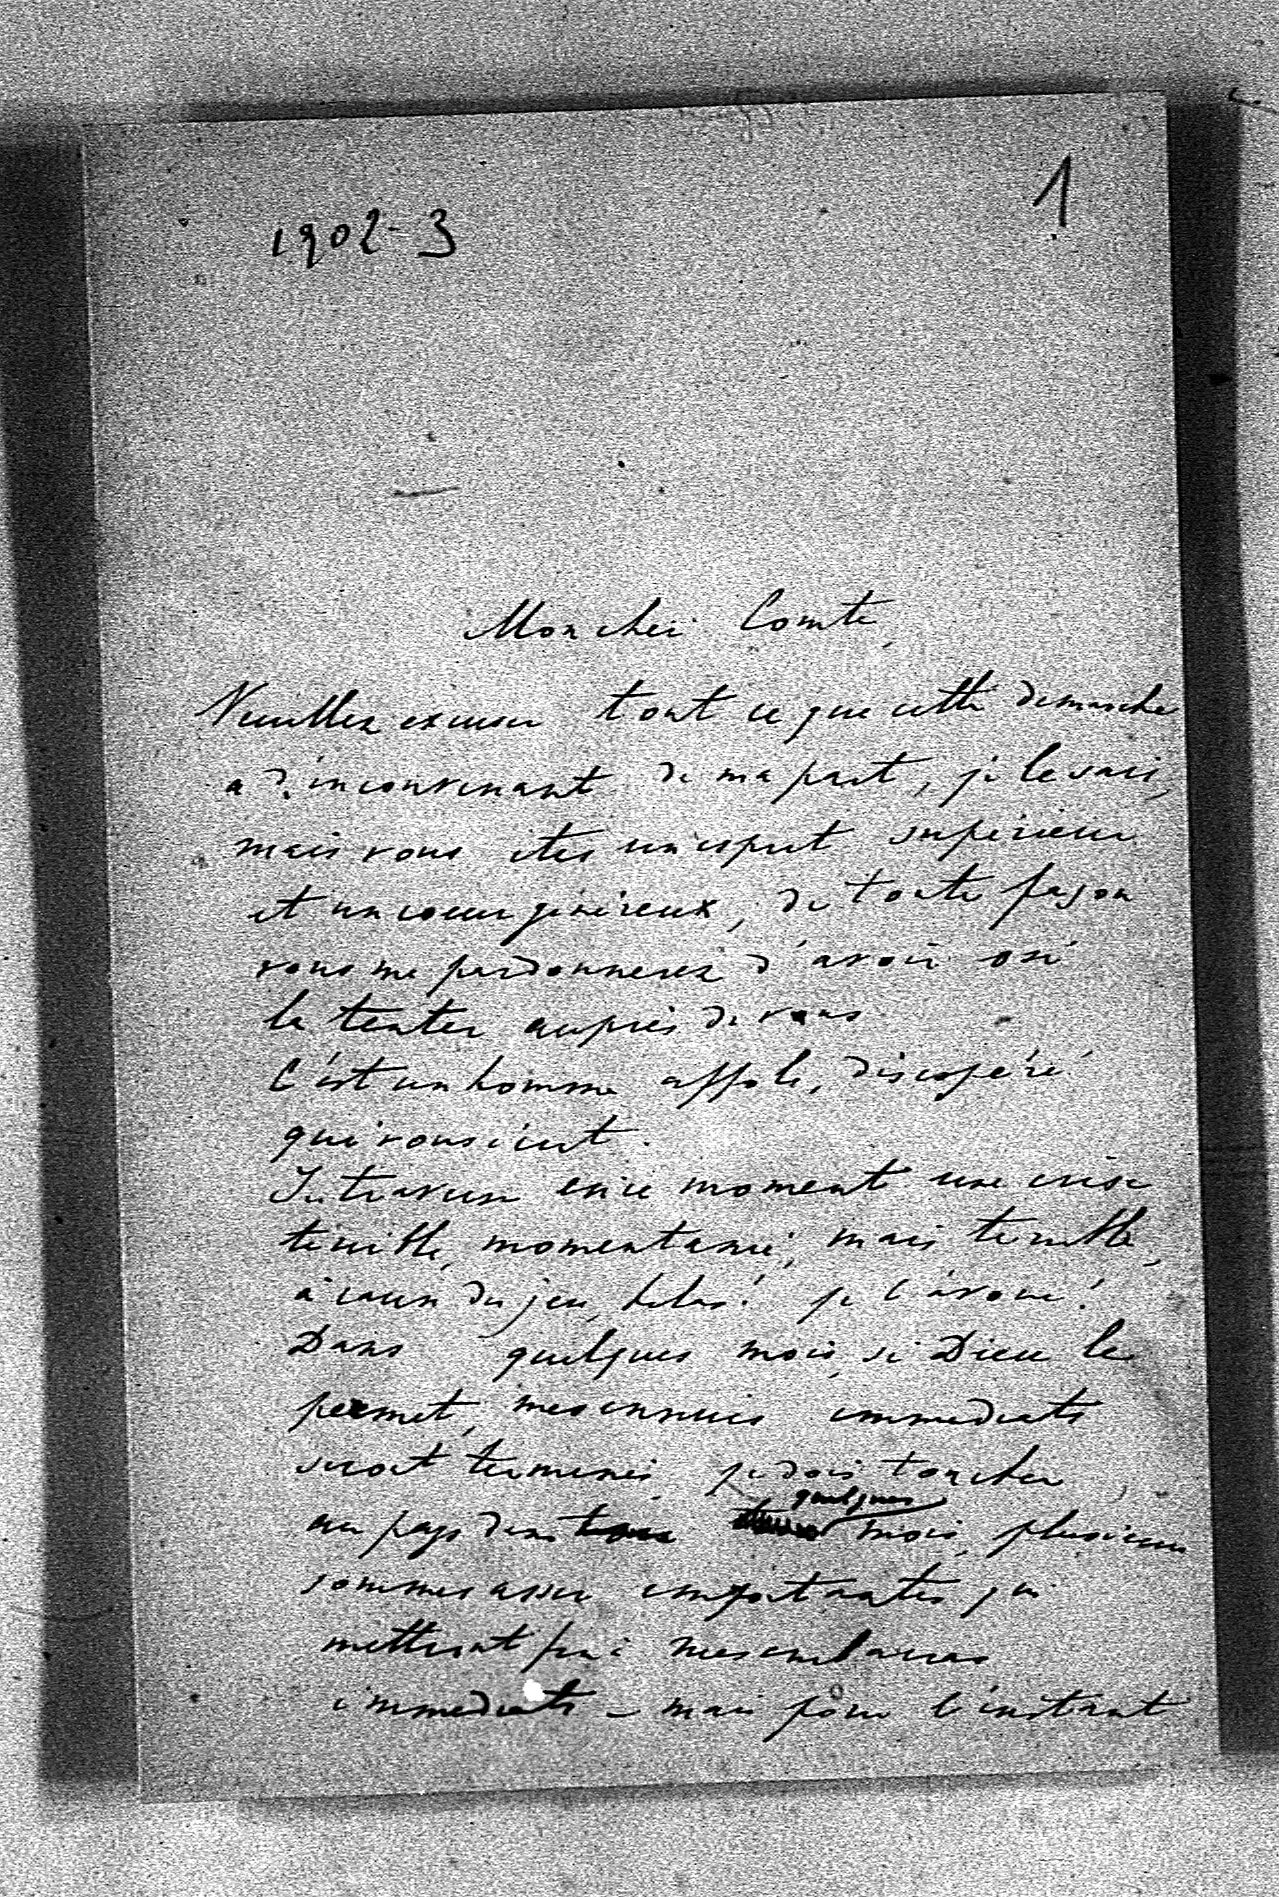 1902-3
1
Mon cher Comte,
Veuillez excuser tout ce que cette démarche
a d'inconvenant de ma part, je le sais,
mais vous êtes un esprit supérieur
et un coeur généreux, de toute façon
vous me pardonnerez d'avoir osé
la tenter auprès de vous
C'est un homme affolé, désespéré
qui vous écrit.
Je traverse en ce moment une crise
terrible, momentanée, mais terrible,
à cause du jeu, hélas! je l'avoue!
Dans quelques mois, si Dieu le
permet, mes ennuis immédiats
seront terminés je dois toucher,
quelques
au pays dans mois, plusieurs
sommes assez importantes qui
mettront fin à mes embarras
immédiats - mais pour l'instant